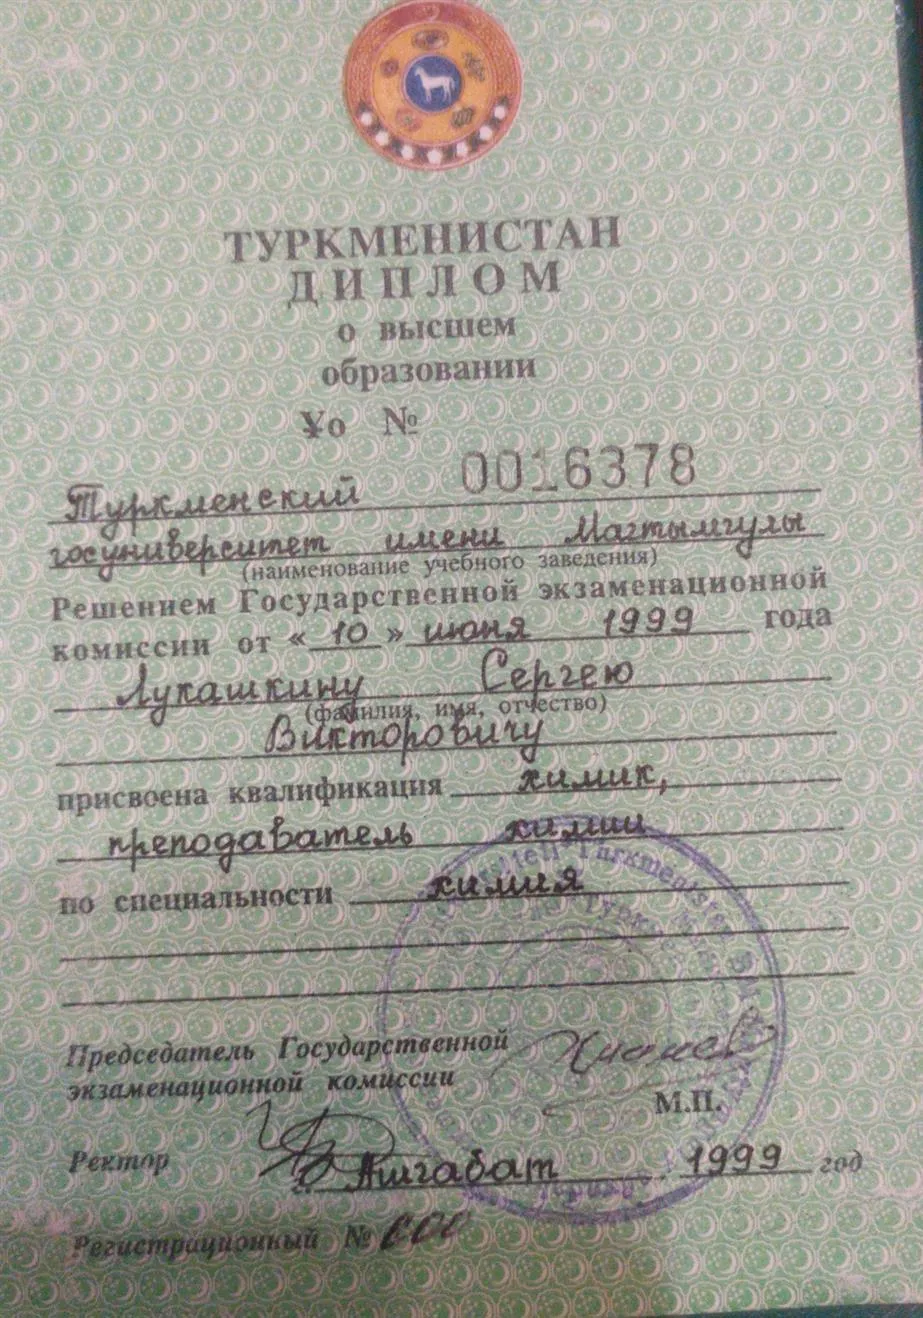 ТУРКМЕНИСТАН
ДИПЛОМ
о высшем
образовании
Ұо №
0016378
Туркменский
госуниверситет имени Магтымгулы
(наименование учебного заведения)
Решением Государственной экзаменационной
комиссии от «10» июня 1999 года
Лукашкину Сергею
(фамилия, имя, отчество)
Викторовичу
присвоена квалификация химик,
преподаватель химии
по специальности химия
Председатель Государственной
экзаменационной комиссии
М.П.
Ректор
г. Ашгабат, 1999 год
Регистрационный №